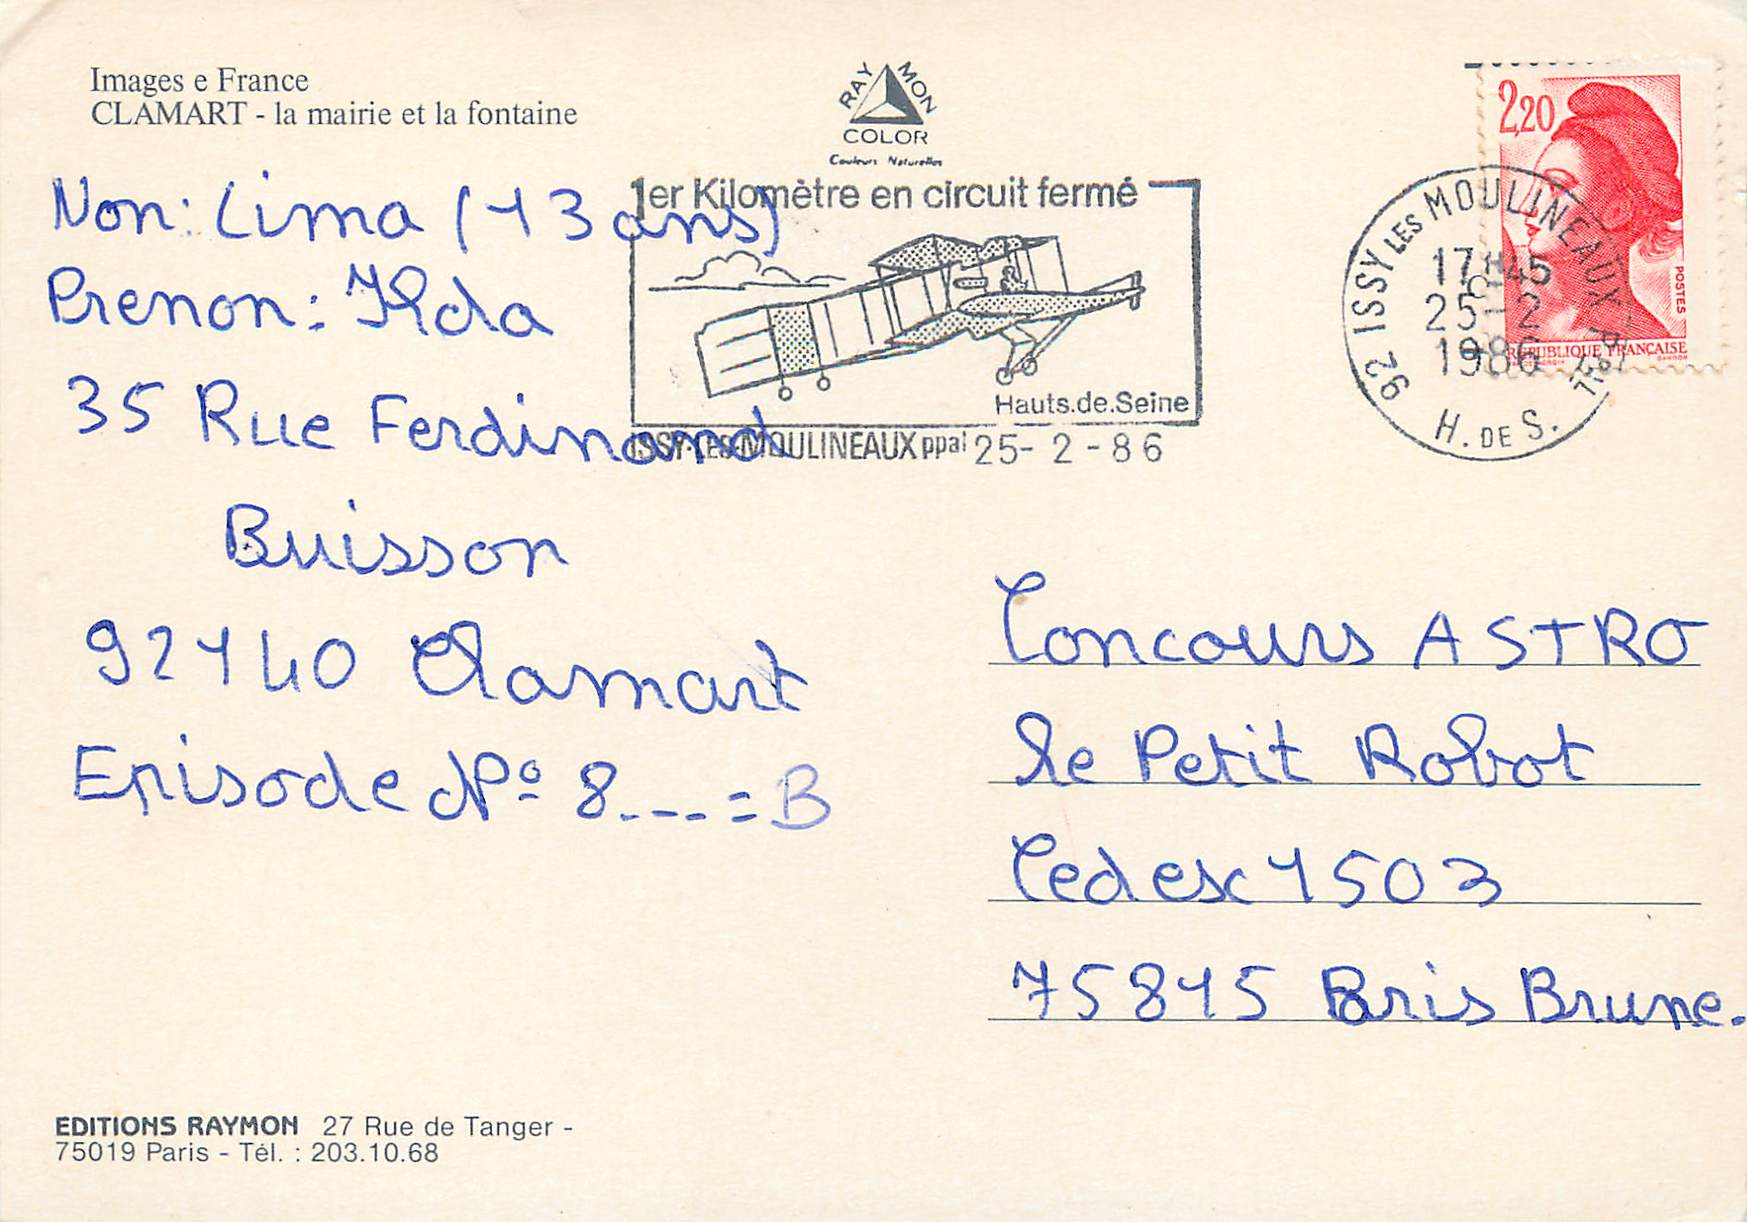 Images e France
CLAMART - la mairie et la fontaine
RAYMON
COLOR
Couleurs Naturelles
2,20
POSTES
REPUBLIQUE FRANÇAISE
1er Kilomètre en circuit fermé
Hauts.de.Seine
ISSY-LES-MOULINEAUX ppal 25-2-86
92 ISSY LES MOULINEAUX PPAL
17H45
25-2
1986
H. DE S.
Non: Lima (13 ans)
Prenon: Ilda
35 Rue Ferdinand
Buisson
92140 Clamart
Episode N° 8---=B
Concours ASTRO
le Petit Robot
Cedex 1503
75815 Paris Brune.
EDITIONS RAYMON 27 Rue de Tanger -
75019 Paris - Tél. : 203.10.68